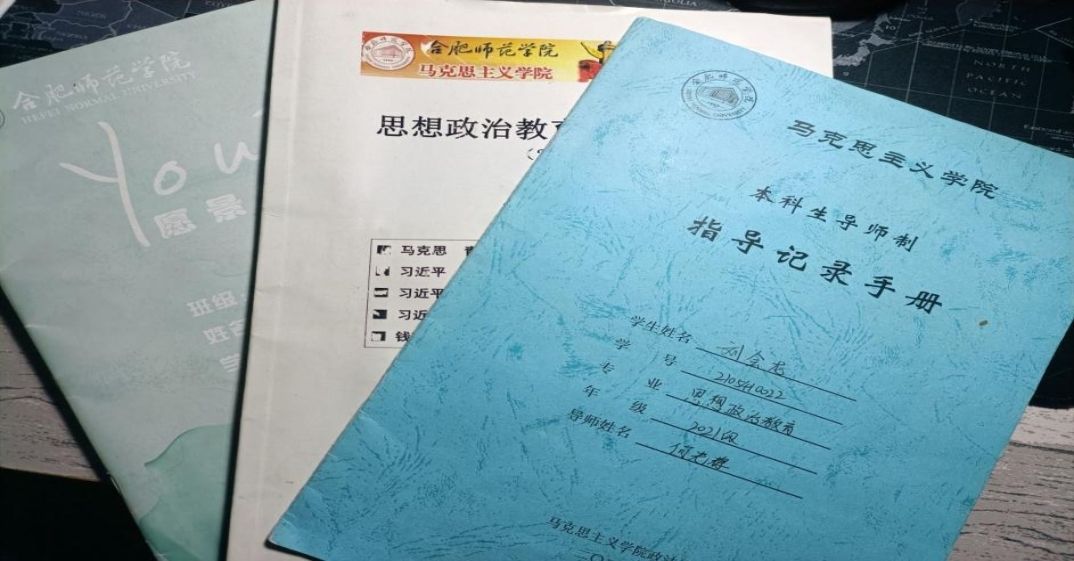 合肥师范学院
HEFEI NORMAL UNIVERSITY
You
愿景
班级:
姓名
合肥师范学院
马克思主义学院
思想政治教育
马克思
习近平
习近平
习近
钱
马克思主义学院
本科生导师制
指导记录手册
学生姓名 刘会龙
学号 2105110022
专业 思想政治教育
年级 2021级
导师姓名
马克思主义学院政法
NORTH
PACIFIC
OCEAN